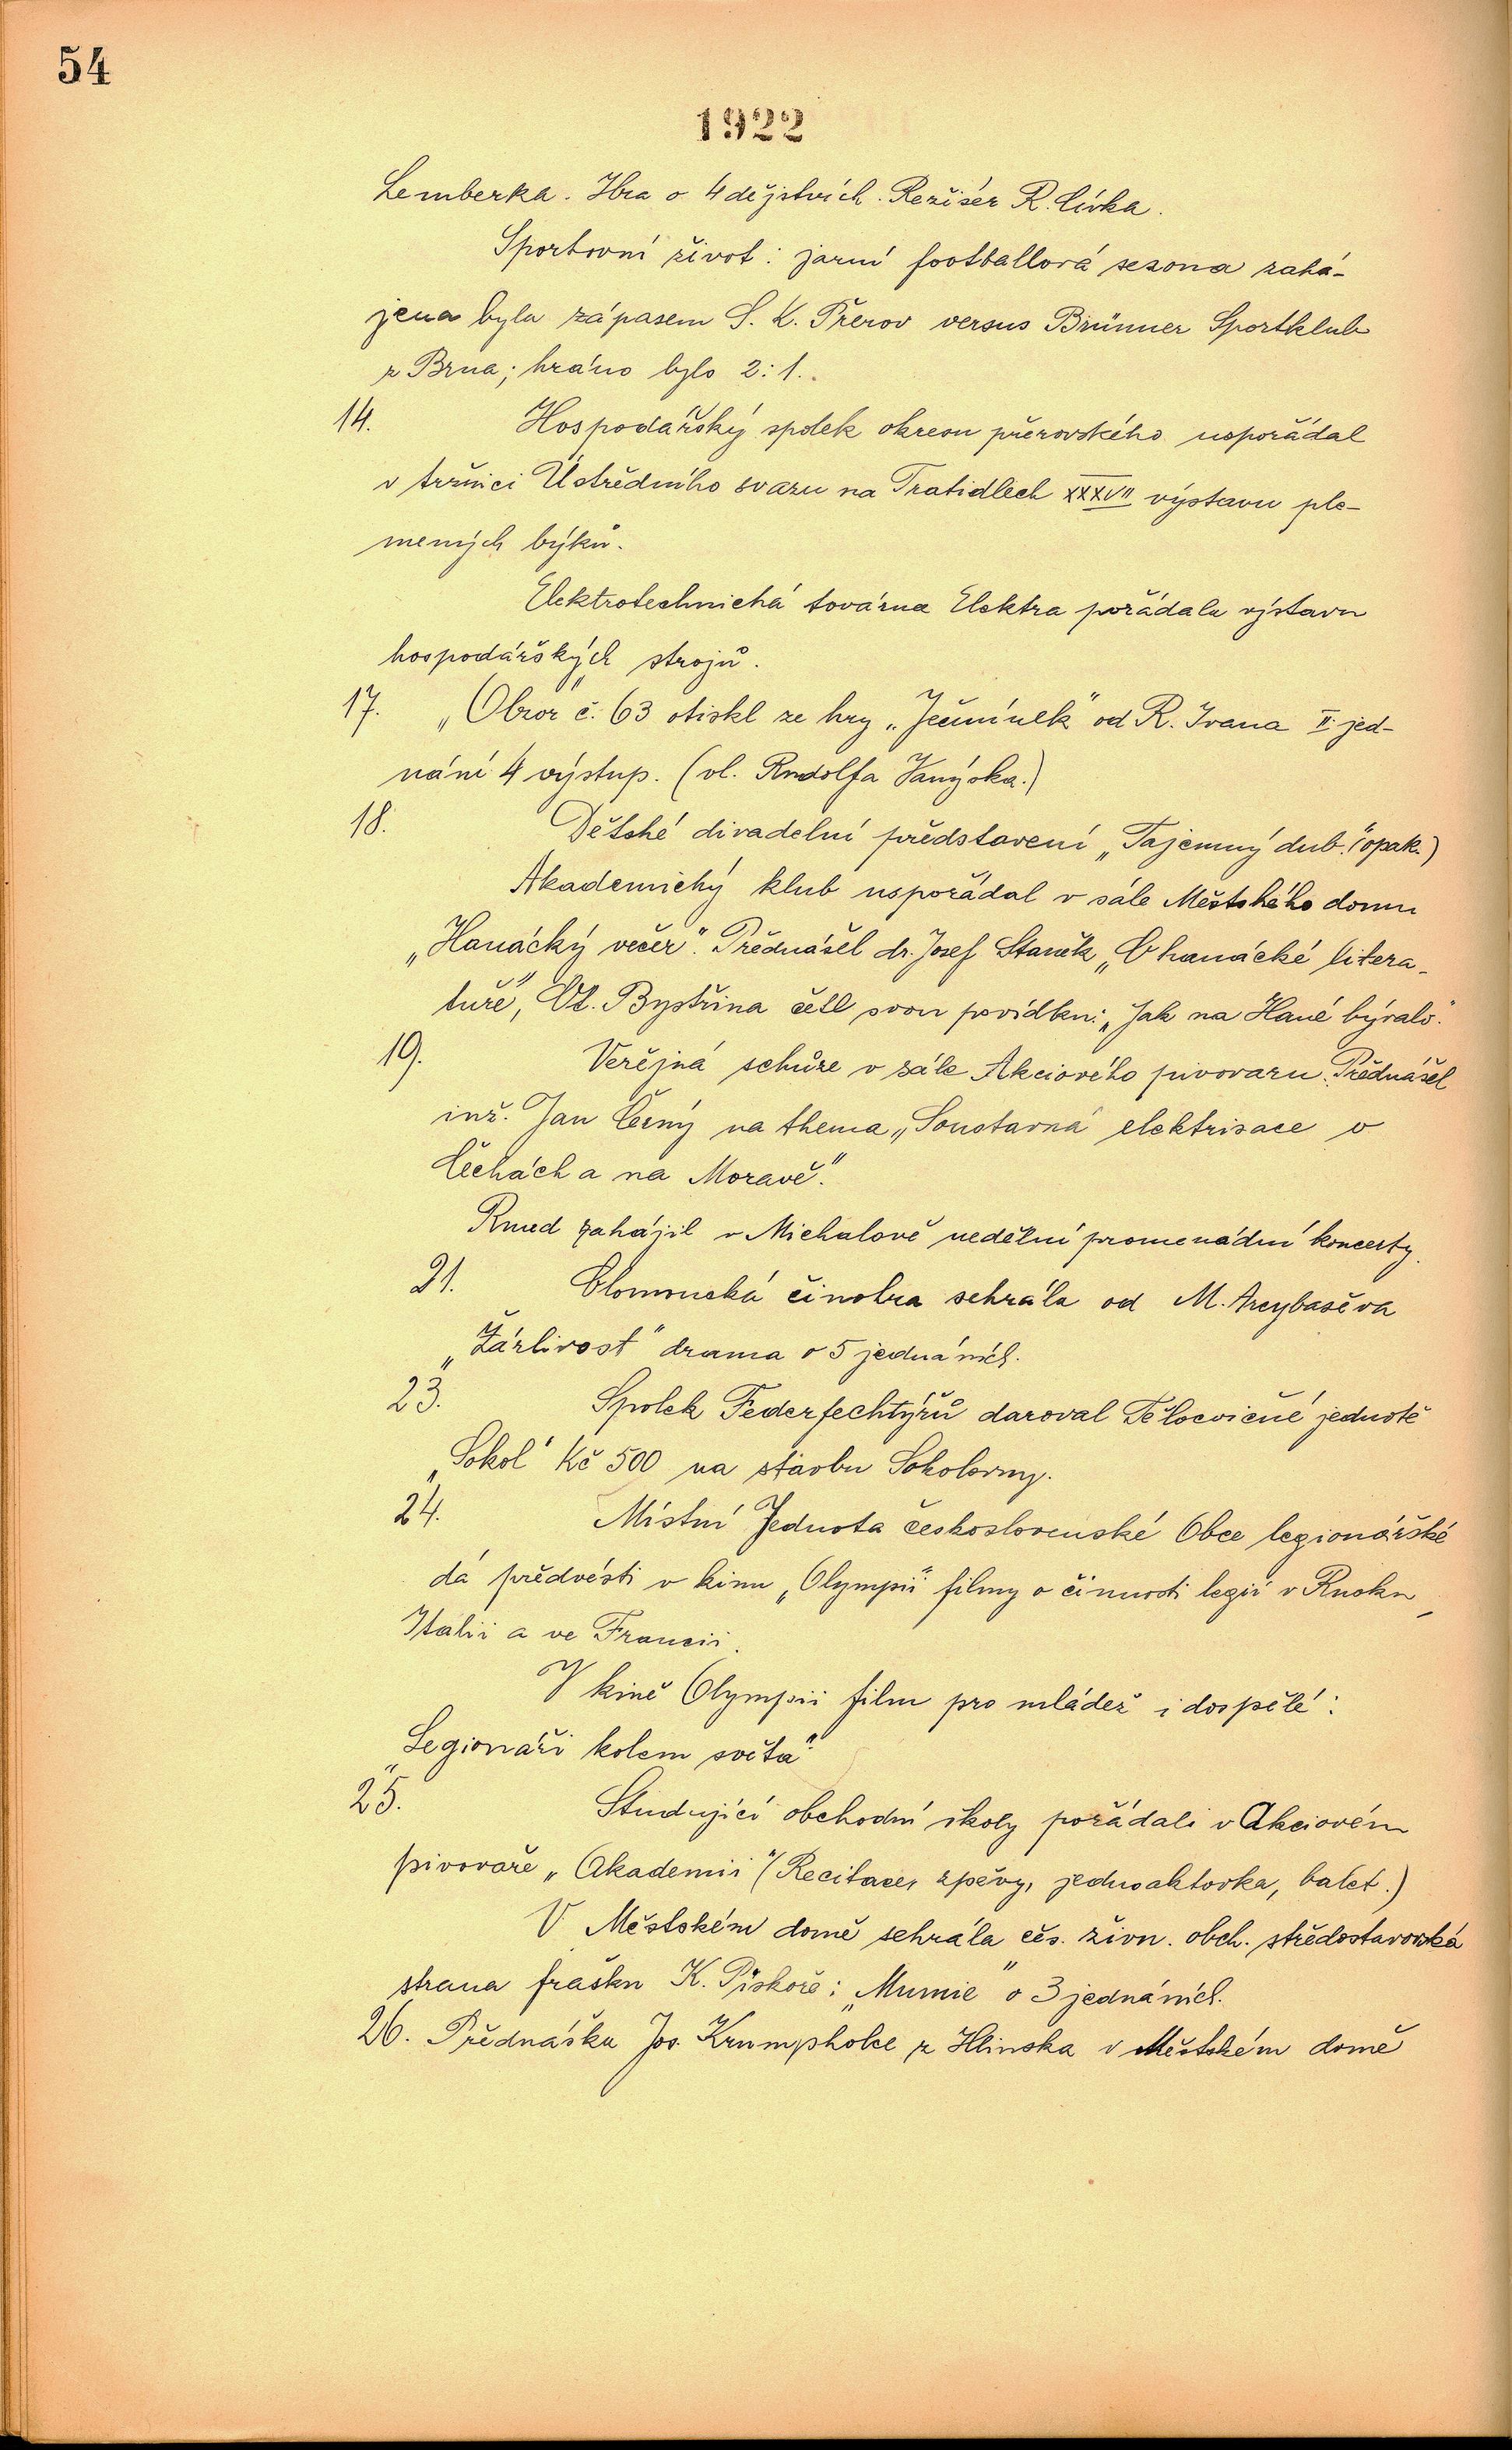 54
1922
Lemberka. Hra o 4 dějstvích. Režisér R. Cívka.
Sportovní život: jarní footballová sezona zahá-
jena byla zápasem S. K. Přerov versus Brünner Sportklub
z Brna; hráno bylo 2:1.
14. Hospodářský spolek okresu přerovského uspořádal
v tržnici Ústředního svazu na Tratidlech XXXVII výstavu ple-
menných býků.
Elektrotechnická továrna Elektra pořádala výstavu
hospodářských strojů.
17. „Obzor" č. 63 otiskl ze hry „Ječmínek" od R. Ivana II. jed-
nání 4 výstup. (vl. Rudolfa Vanýska.)
18. Dětské divadelní představení „Tajemný dub." (opak.)
Akademický klub uspořádal v sále Městského domu
„Hanácký večer". Přednášel dr. Josef Staněk „O hanácké litera-
tuře", Ot. Bystřina četl svou povídku: „Jak na Hané bývalo."
19. Veřejná schůze v sále Akciového pivovaru. Přednášel
inž. Jan Černý na thema „Soustavná elektrisace v
Čechách a na Moravě."
Rmed zahájil v Michalově nedělní promenádní koncerty.
21. Olomoucká činohra sehrála od M. Arcybaševa
„Žárlivost" drama o 5 jednáních.
23. Spolek Federfechtýřů daroval Tělocvičné jednotě
„Sokol" Kč 500 na stavbu Sokolovny.
24. Místní Jednota československé Obce legionářské
dá předvésti v kinu „Olympii" filmy o činnosti legií v Rusku,
Italii a ve Francii.
V kině Olympii film pro mládež i dospělé:
„Legionáři kolem světa"
25. Studující obchodní školy pořádali v Akciovém
pivovaře „Akademii" (Recitace, zpěvy, jednoaktovka, balet.)
V Městském domě sehrála čes. živn. obch. středostavovská
strana frašku K. Piskoře: „Mumie" o 3 jednáních.
26. Přednáška Jos. Krumpholce z Hlinska v Městském domě